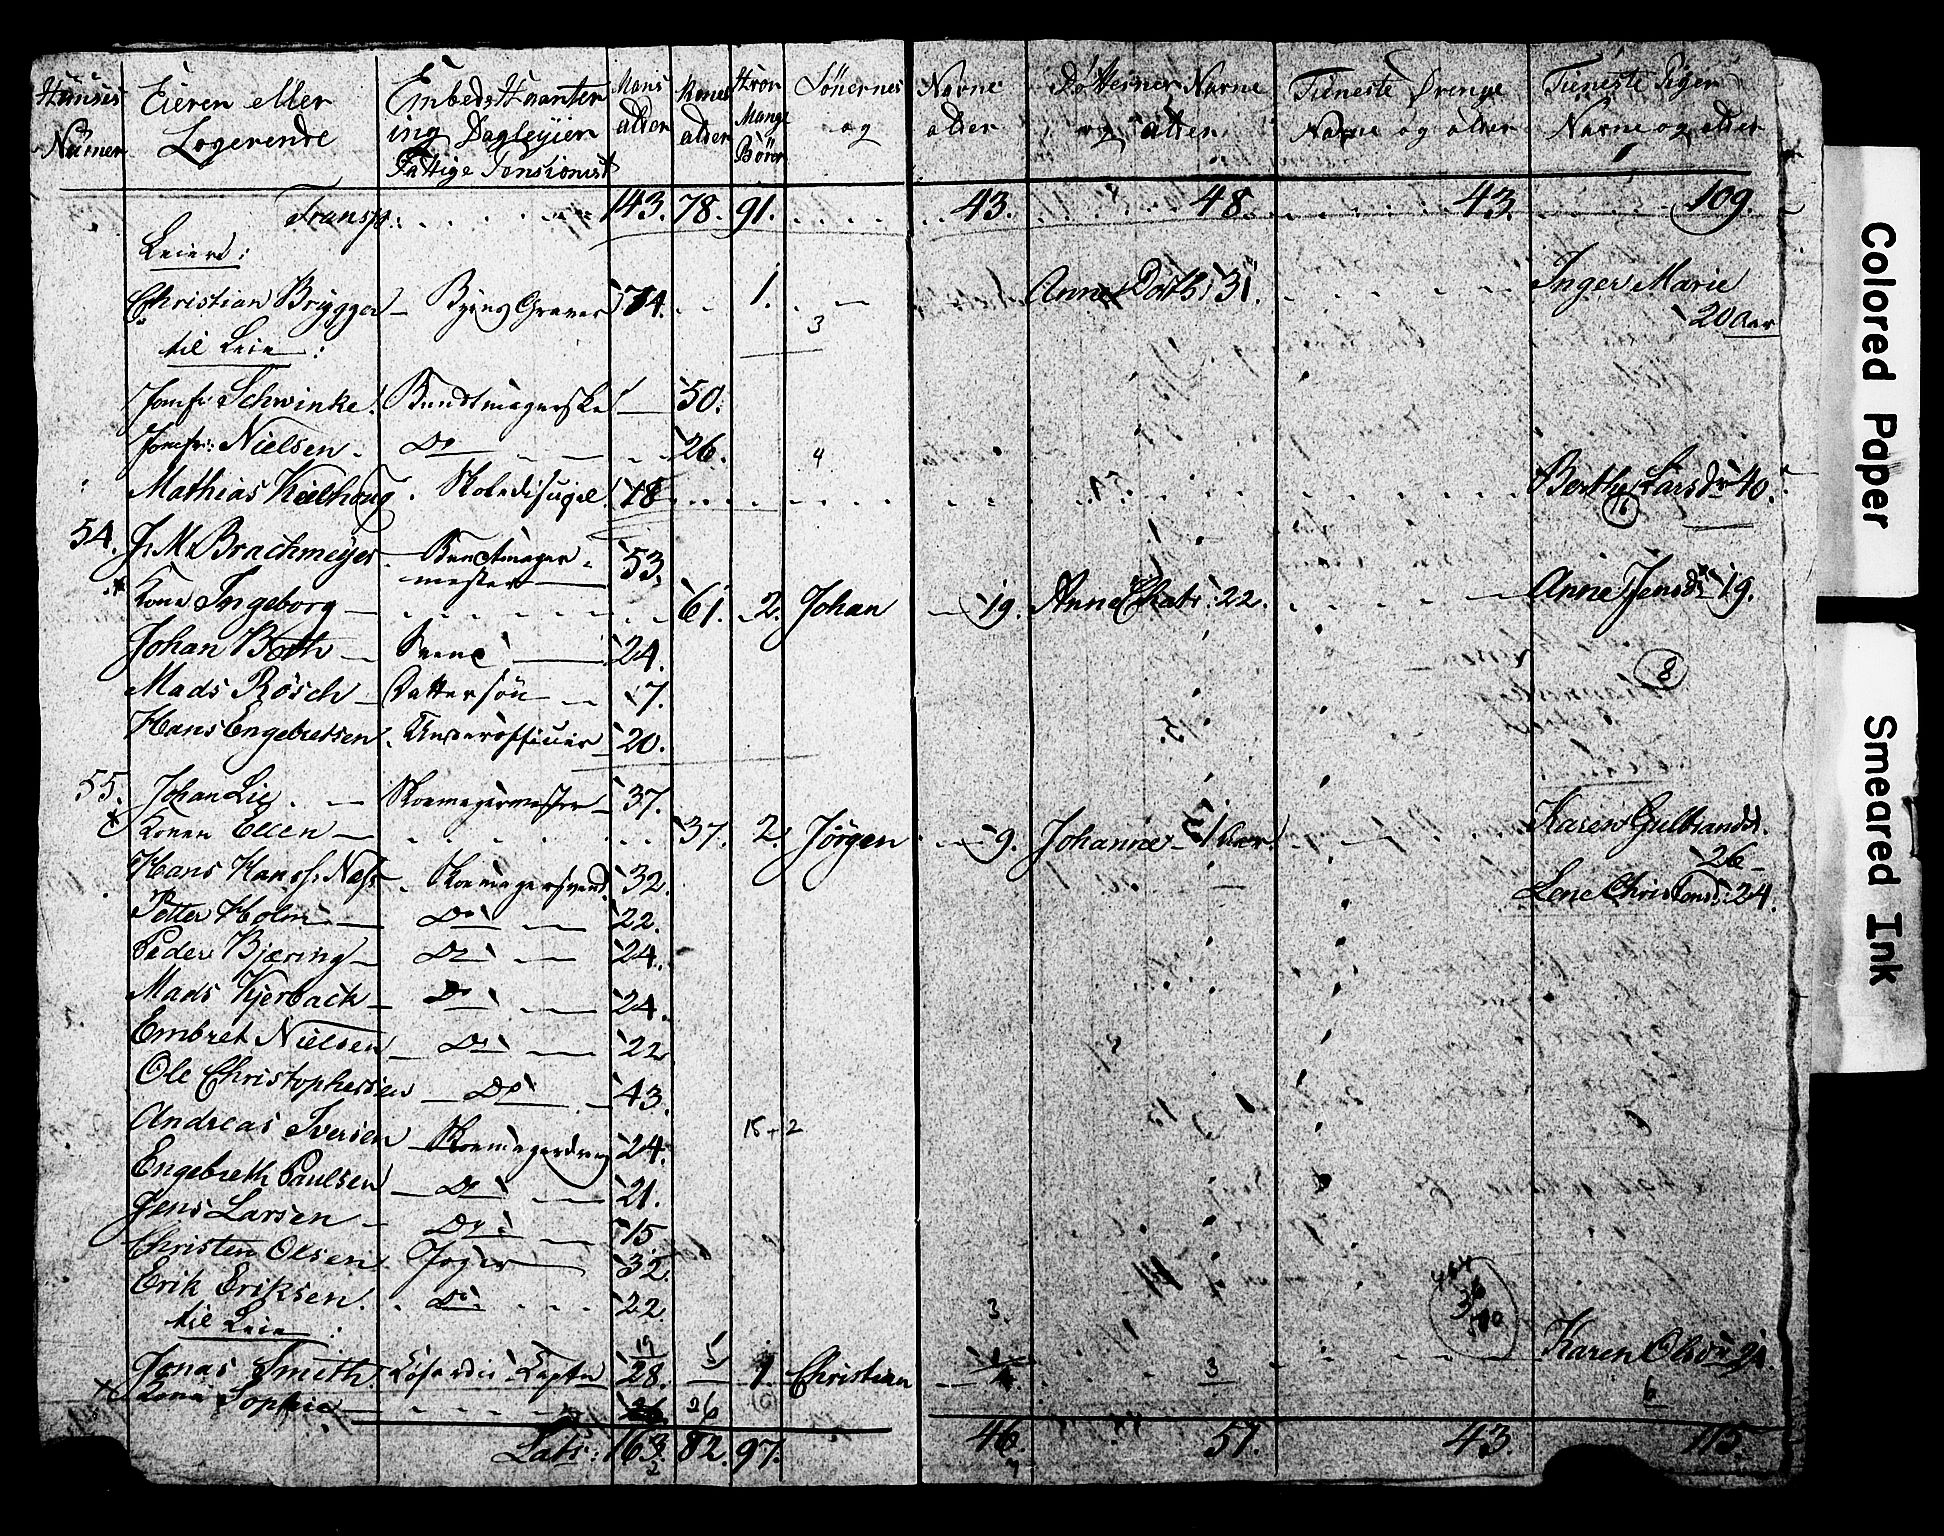 Huuses Numer | Eieren eller Logerende | Embeds Haanter ing Dagleyier Fattige Pensionist | Mans alder | Kones alder | Hvor Mange Börn | Sönernes og | Navne alder | Dötternes Navne og alder | Tieneste Drenge Navne og alder | Tieneste Piger Navne og alder
Transp: 143. 78. 91. 43. 48. 43. 109.
Leier:
Christian Brygger Byens Graver 74. 1. Anne Doth: 31. Inger Marie
3 20 Aar
til Leie:
Jomfr Schwinke Bundtmagerske 50.
Jomfr: Nielsen Do 26. 4
Mathias Kielhoug 18 Berthe Larsdr 40.
54. J: M: Brachmeyer Buntmager mester 53.
Kone Ingeborg 61. 2. Johan 19. Anne Chatr: 22. Anne Jensdr 19.
Johan Svend 24. 8
Mads Rösch Dattersön 7.
Hans Engebretsen Underofficier 20.
55. Johan Lie Skoemagermester 37.
Konen Ellen 37. 2. Jörgen 9. Johanne 1 Aar Karen Gulbrandsd.
26
Hans Hanss: Næss Skoemagersvend 32. Lene Christensd: 24.
Petter Holm Do 22.
Peder Bjæring Do 24.
Mads Kjerback Do 24.
Embret Nielsen Do 22
Ole Christophersen Do 43.
Andreas Iversen Skoemagerdreng 24. 15 + 2
Engebreth Paulsen Do 21.
Jens Larsen Do 15
Christen Olsen Jæger 32.
Erik Eriksen Do 22.
til Leie: 3
Jonas Smith 28. 1. Christian Karen Olsdr
Kone Sophie 26 6
Lats: 163. 82. 97. 46. 51. 43. 115.
Colored Paper
Smeared Ink